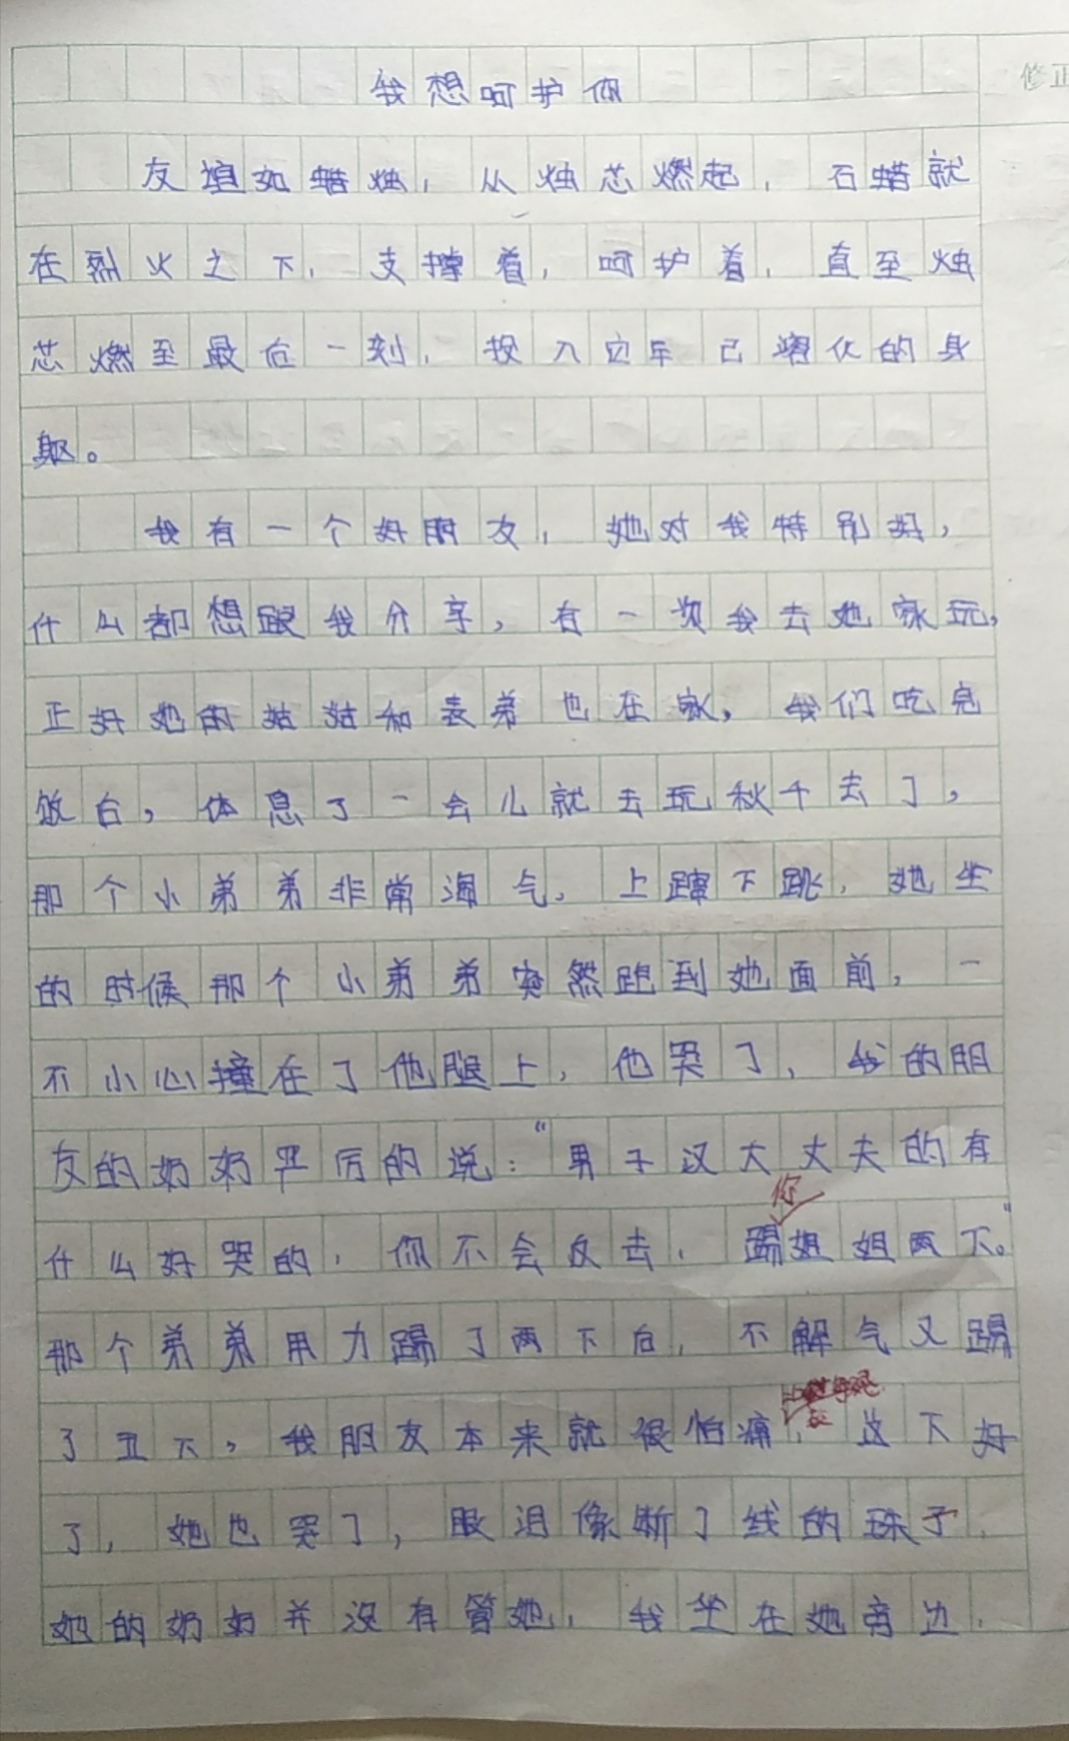 我想呵护你
修正
友谊如蜡烛，从烛芯燃起，石蜡就
在烈火之下，支撑着，呵护着，直至烛
芯燃至最后一刻，投入它早已熔化的身
躯。
我有一个好朋友，她对我特别好，
什么都想跟我分享，有一次我去她家玩，
正好她的姑姑和表弟也在家，我们吃完
饭后，休息了一会儿就去玩秋千去了，
那个小弟弟非常淘气，上蹿下跳，她坐
的时候那个小弟弟突然跑到她面前，一
不小心撞在了他腿上，他哭了，我的朋
友的奶奶严厉的说：“男子汉大丈夫的有
什么好哭的，你不会反去，你踢姐姐两下。”
那个弟弟用力踢了两下后，不解气又踢
了五下，我朋友本来就很怕痛，这下好
了，她也哭了，眼泪像断了线的珠子，
她的奶奶并没有管她，我坐在她旁边，